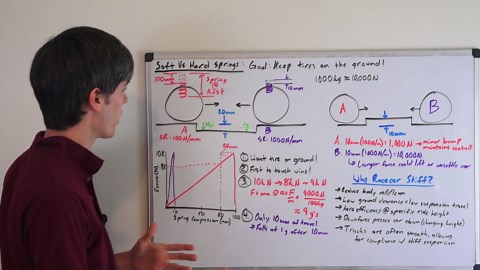 Soft Vs Hard Springs: Goal: Keep tires on the ground!
1000kg ≈ 10,000N
100mm
Spring
At
Rest
10mm
20mm
A
B
SR: 100N/mm
SR: 1000N/mm
A
B
10mm
A: 10mm(100N/mm) = 1,000N → minor bump
maintains contact
B: 10mm(1000N/m) = 10,000N
↳ Larger force could lift or unsettle car
Force(N)
10k
8k
20mm
10
80
100
Spring Compression (mm)
① Want tire on ground!
② First to touch wins!
③ 10kN → 8kN ~ 9kN
F=ma a=F/m = 9000N/100kg
≈ 9 g's
④ Only 10mm of travel
→ Falls at 1g after 10mm
Why Racecar Stiff?
→ Reduce body roll/lean
→ Low ground clearance = low suspension travel
→ Downforce presses car down (changing height)
→ Tracks are often smooth, allowing
for compliance w/ stiff suspension